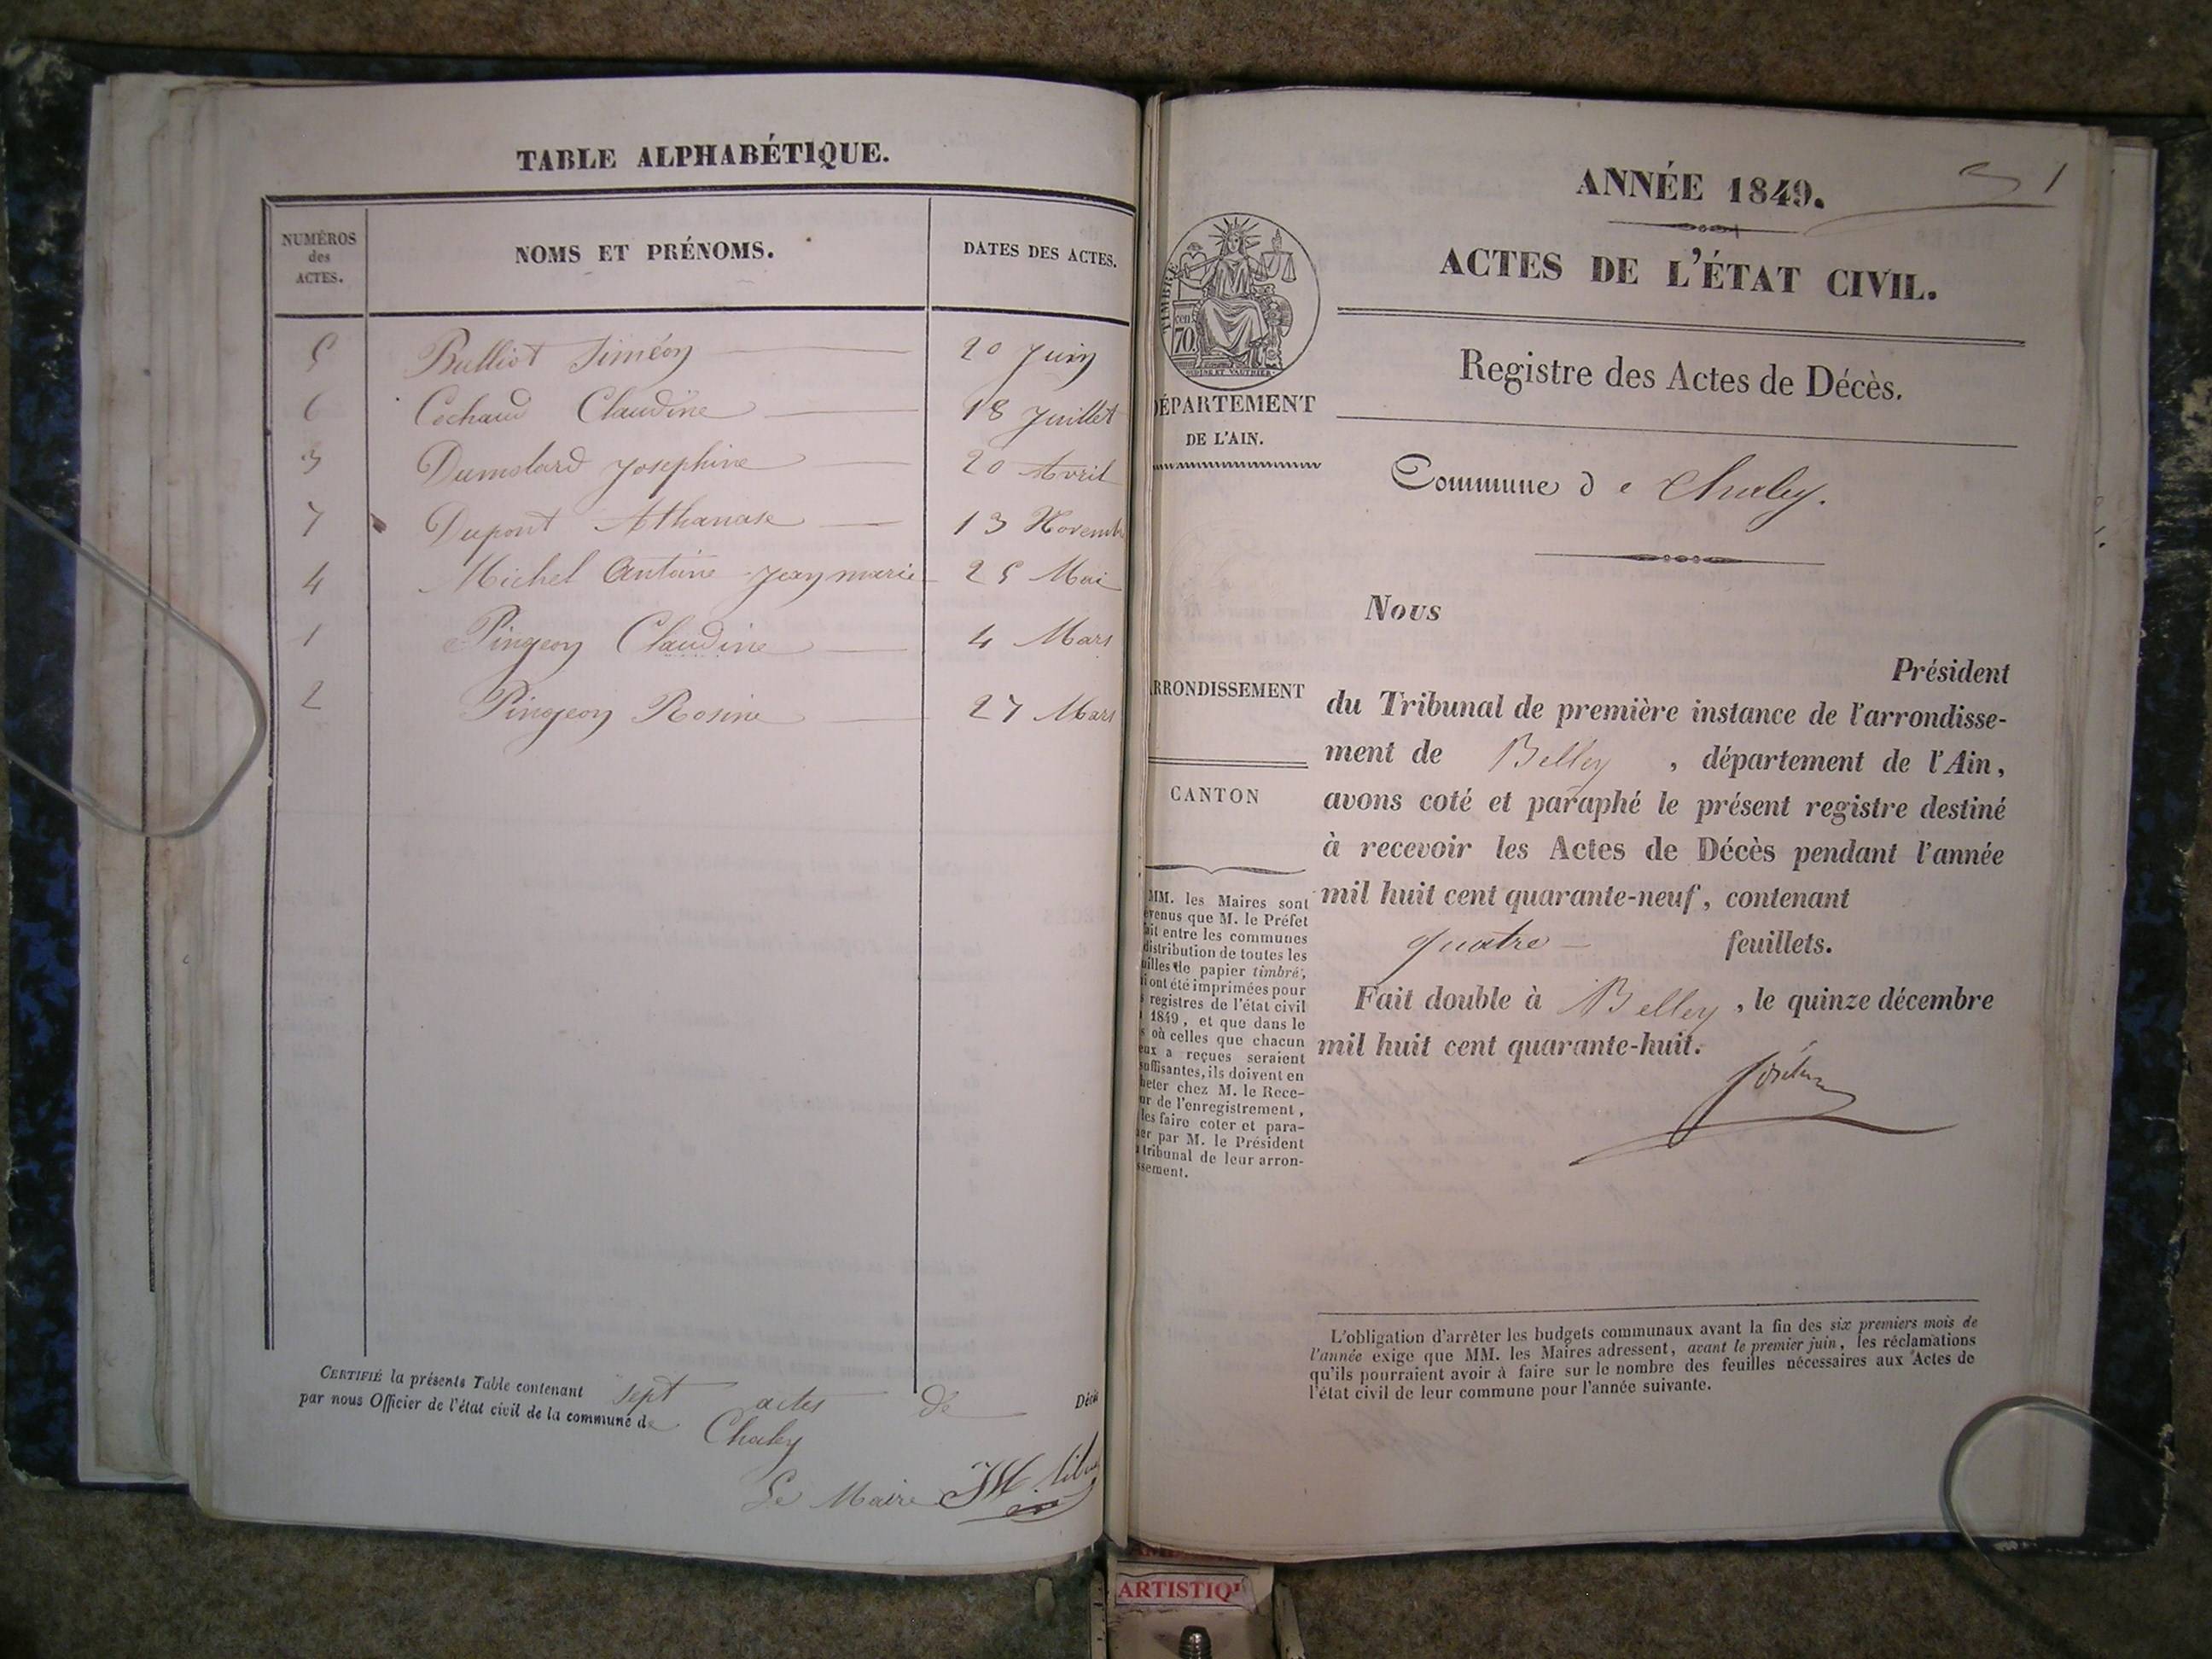 TABLE ALPHABÉTIQUE.
NUMÉROS
des
ACTES.
NOMS ET PRÉNOMS.
DATES DES ACTES.
5 Bulliot Siméon 20 Juin
6 Cochaud Claudine 18 Juillet
3 Dumolard Josephine 20 Avril
7 Dupont Athanase 13 Novemb
4 Michel Antoine Jean marie 25 Mai
1 Pingeon Claudine 4 Mars
2 Pingeon Rosine 27 Mars
CERTIFIÉ la présente Table contenant sept actes de Décè
par nous Officier de l'état civil de la commune de Chaley
Le Maire
ANNÉE 1849.
ACTES DE L'ÉTAT CIVIL.
TIMBRE
cen.
70.
Registre des Actes de Décès.
DÉPARTEMENT
DE L'AIN.
Commune de Chaley.
Nous
Président
du Tribunal de première instance de l'arrondisse-
ment de Belley, département de l'Ain,
avons coté et paraphé le présent registre destiné
à recevoir les Actes de Décès pendant l'année
mil huit cent quarante-neuf, contenant
quatre feuillets.
Fait double à Belley, le quinze décembre
mil huit cent quarante-huit.
RRONDISSEMENT
CANTON
MM. les Maires sont
évenus que M. le Préfet
ait entre les communes
distribution de toutes les
uilles de papier timbré,
i ont été imprimées pour
s registres de l'état civil
1849, et que dans le
s où celles que chacun
eux a reçues seraient
suffisantes, ils doivent en
heter chez M. le Rece-
ur de l'enregistrement,
les faire coter et para-
er par M. le Président
u tribunal de leur arron-
ssement.
L'obligation d'arrêter les budgets communaux avant la fin des six premiers mois de
l'année exige que MM. les Maires adressent, avant le premier juin, les réclamations
qu'ils pourraient avoir à faire sur le nombre des feuilles nécessaires aux Actes de
l'état civil de leur commune pour l'année suivante.
ARTISTIQ